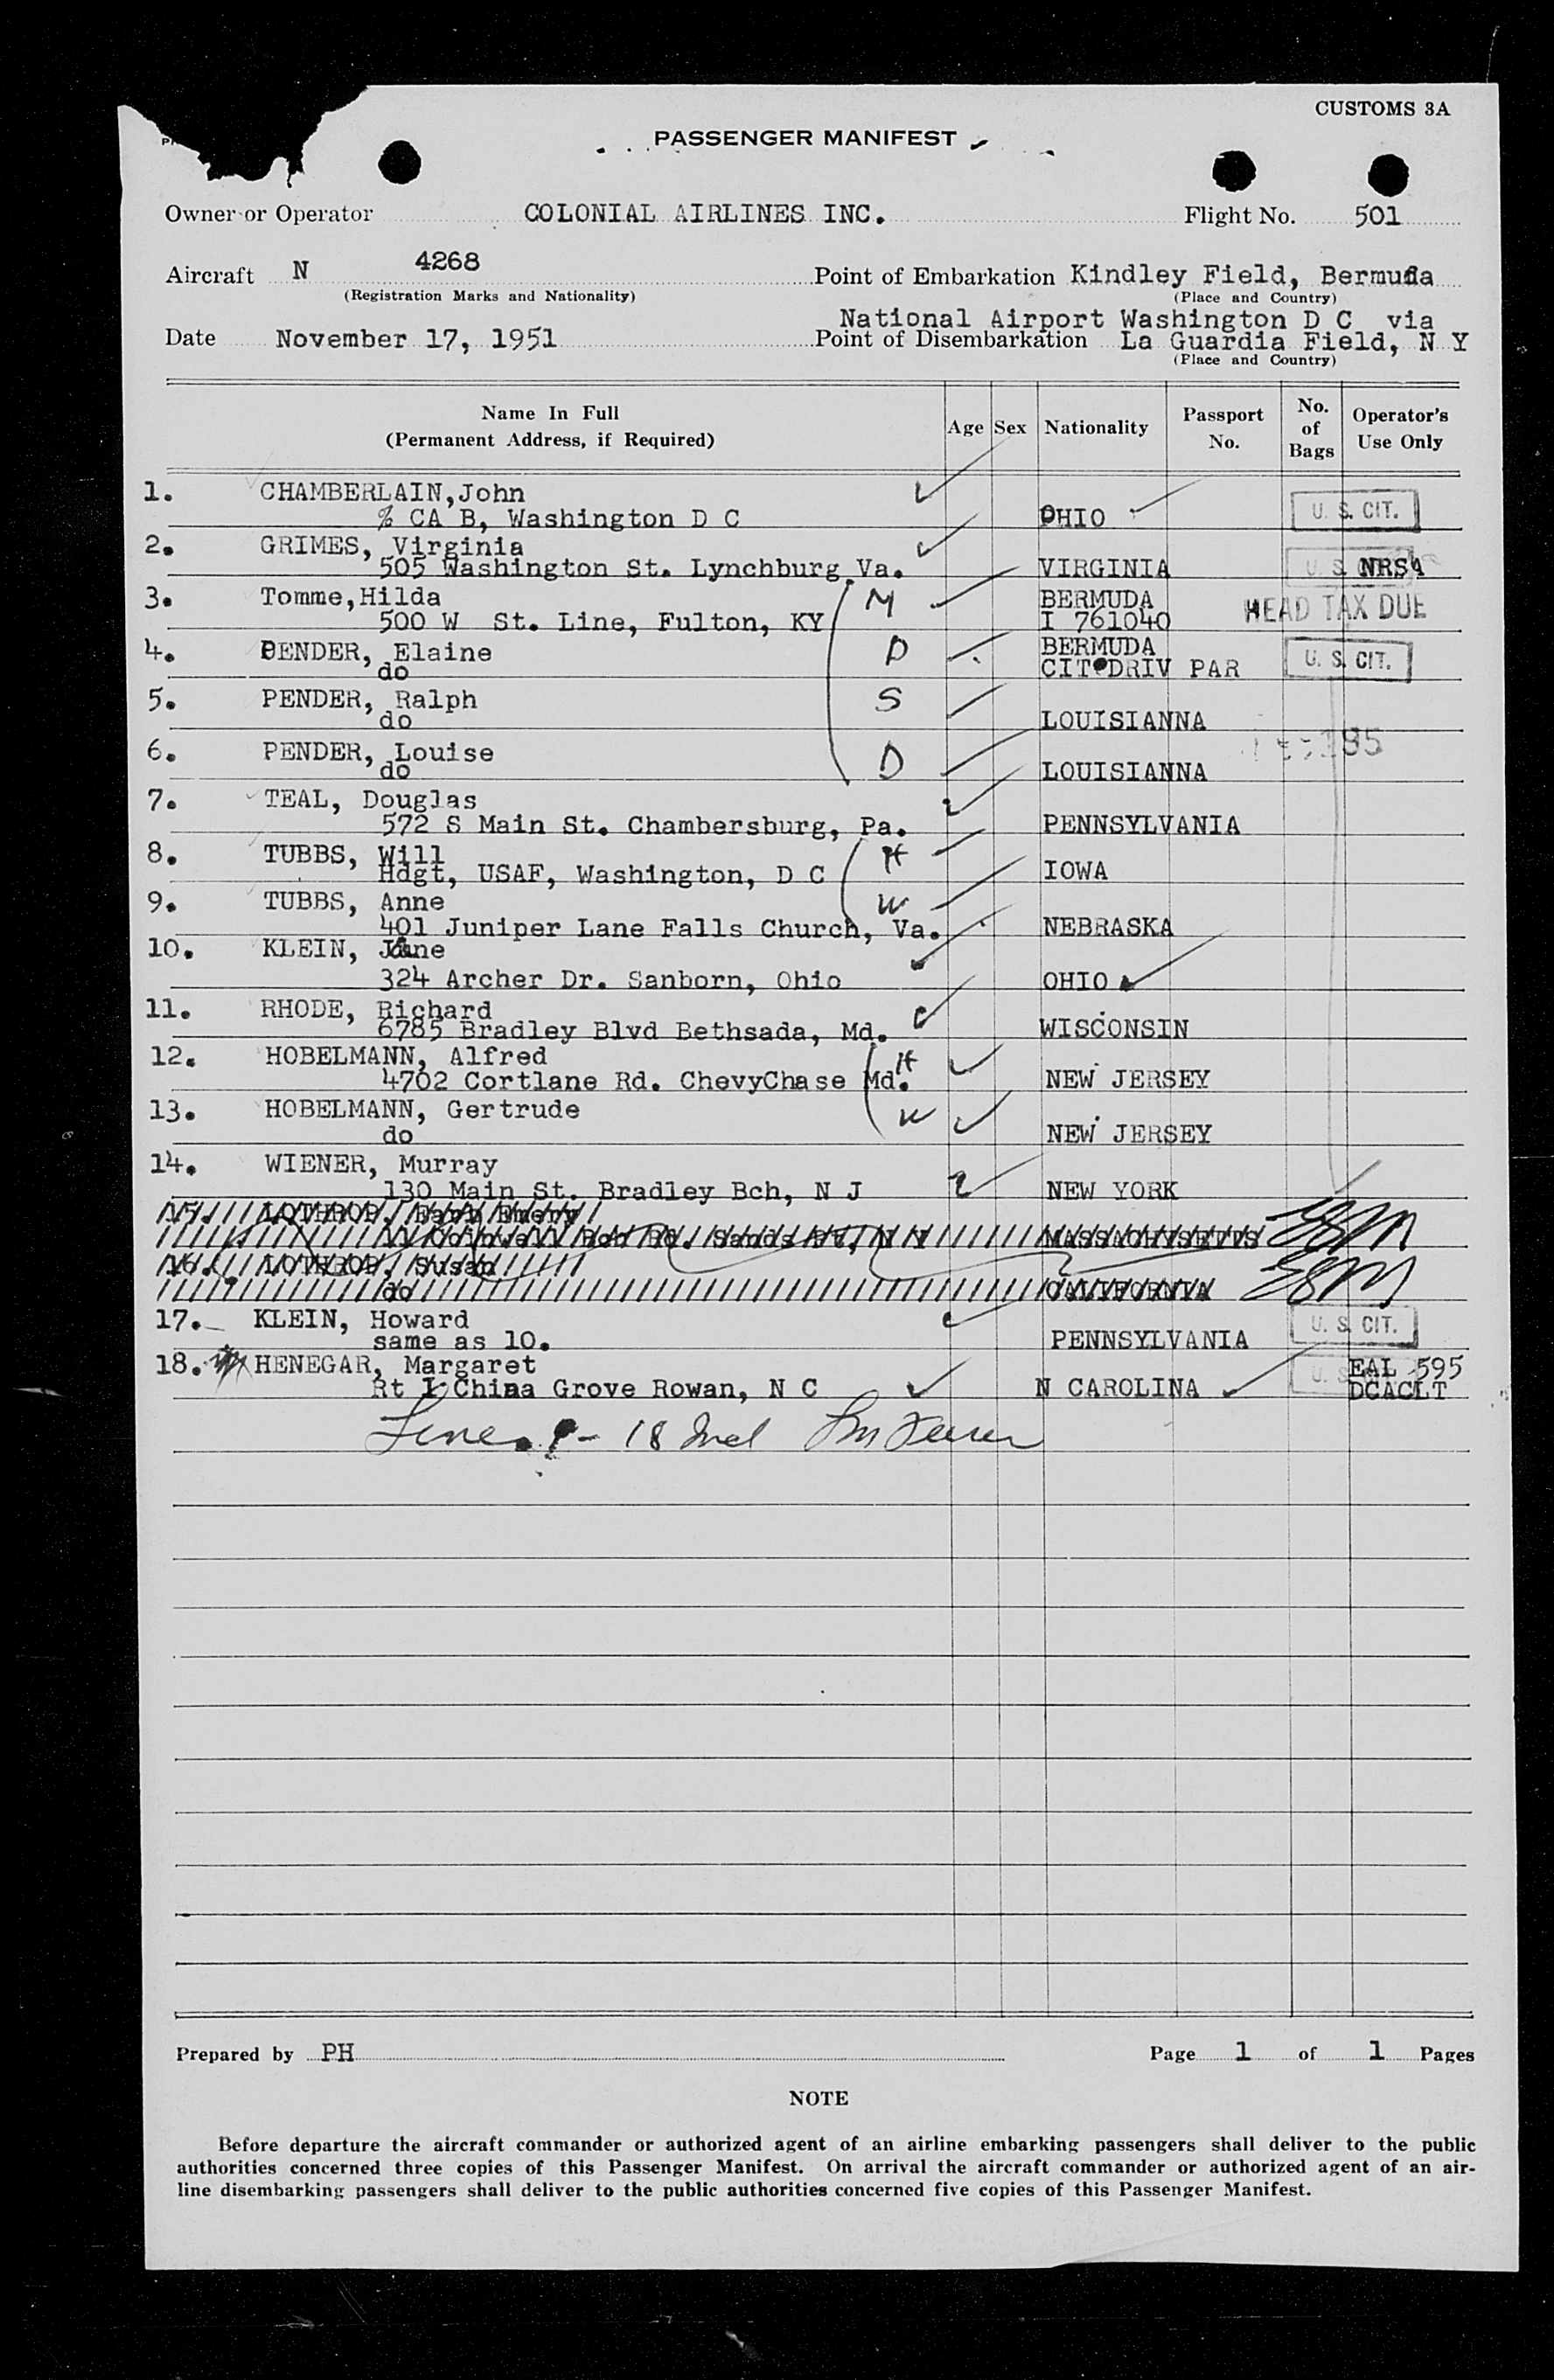 CUSTOMS 3A
PASSENGER MANIFEST
Owner or Operator COLONIAL AIRLINES INC. Flight No. 501
Aircraft N 4268 Point of Embarkation Kindley Field, Bermuda
(Registration Marks and Nationality) (Place and Country)
National Airport Washington D C via
Date November 17, 1951 Point of Disembarkation La Guardia Field, N Y
(Place and Country)
Name In Full
(Permanent Address, if Required)
Age Sex Nationality Passport No. No. of Bags Operator's Use Only
1. CHAMBERLAIN, John
% CA B, Washington D C OHIO U. S. CIT.
2. GRIMES, Virginia
505 Washington St. Lynchburg Va. VIRGINIA NRSA
3. Tomme, Hilda M BERMUDA HEAD TAX DUE
500 W St. Line, Fulton, KY I 761040
4. PENDER, Elaine D BERMUDA U. S. CIT.
do CIT DRIV PAR
5. PENDER, Ralph S
do LOUISIANNA
6. PENDER, Louise D
do LOUISIANNA
7. TEAL, Douglas
572 S Main St. Chambersburg, Pa. PENNSYLVANIA
8. TUBBS, Will H
Hdgt, USAF, Washington, D C IOWA
9. TUBBS, Anne W
401 Juniper Lane Falls Church, Va. NEBRASKA
10. KLEIN, Jane
324 Archer Dr. Sanborn, Ohio OHIO
11. RHODE, Richard
6785 Bradley Blvd Bethsada, Md. WISCONSIN
12. HOBELMANN, Alfred H
4702 Cortlane Rd. ChevyChase Md. NEW JERSEY
13. HOBELMANN, Gertrude W
do NEW JERSEY
14. WIENER, Murray
130 Main St. Bradley Bch, N J NEW YORK
15. LOTHROP, Emery
Rd. Sands Pt, N Y MASSACHUSETTS
16. LOTHROP, Susan
do CALIFORNIA
17. KLEIN, Howard
same as 10. PENNSYLVANIA U. S. CIT.
18. HENEGAR, Margaret EAL 595
Rt 1 China Grove Rowan, N C N CAROLINA DCACLT
18 Incl
Prepared by PH Page 1 of 1 Pages
NOTE
Before departure the aircraft commander or authorized agent of an airline embarking passengers shall deliver to the public
authorities concerned three copies of this Passenger Manifest. On arrival the aircraft commander or authorized agent of an air-
line disembarking passengers shall deliver to the public authorities concerned five copies of this Passenger Manifest.